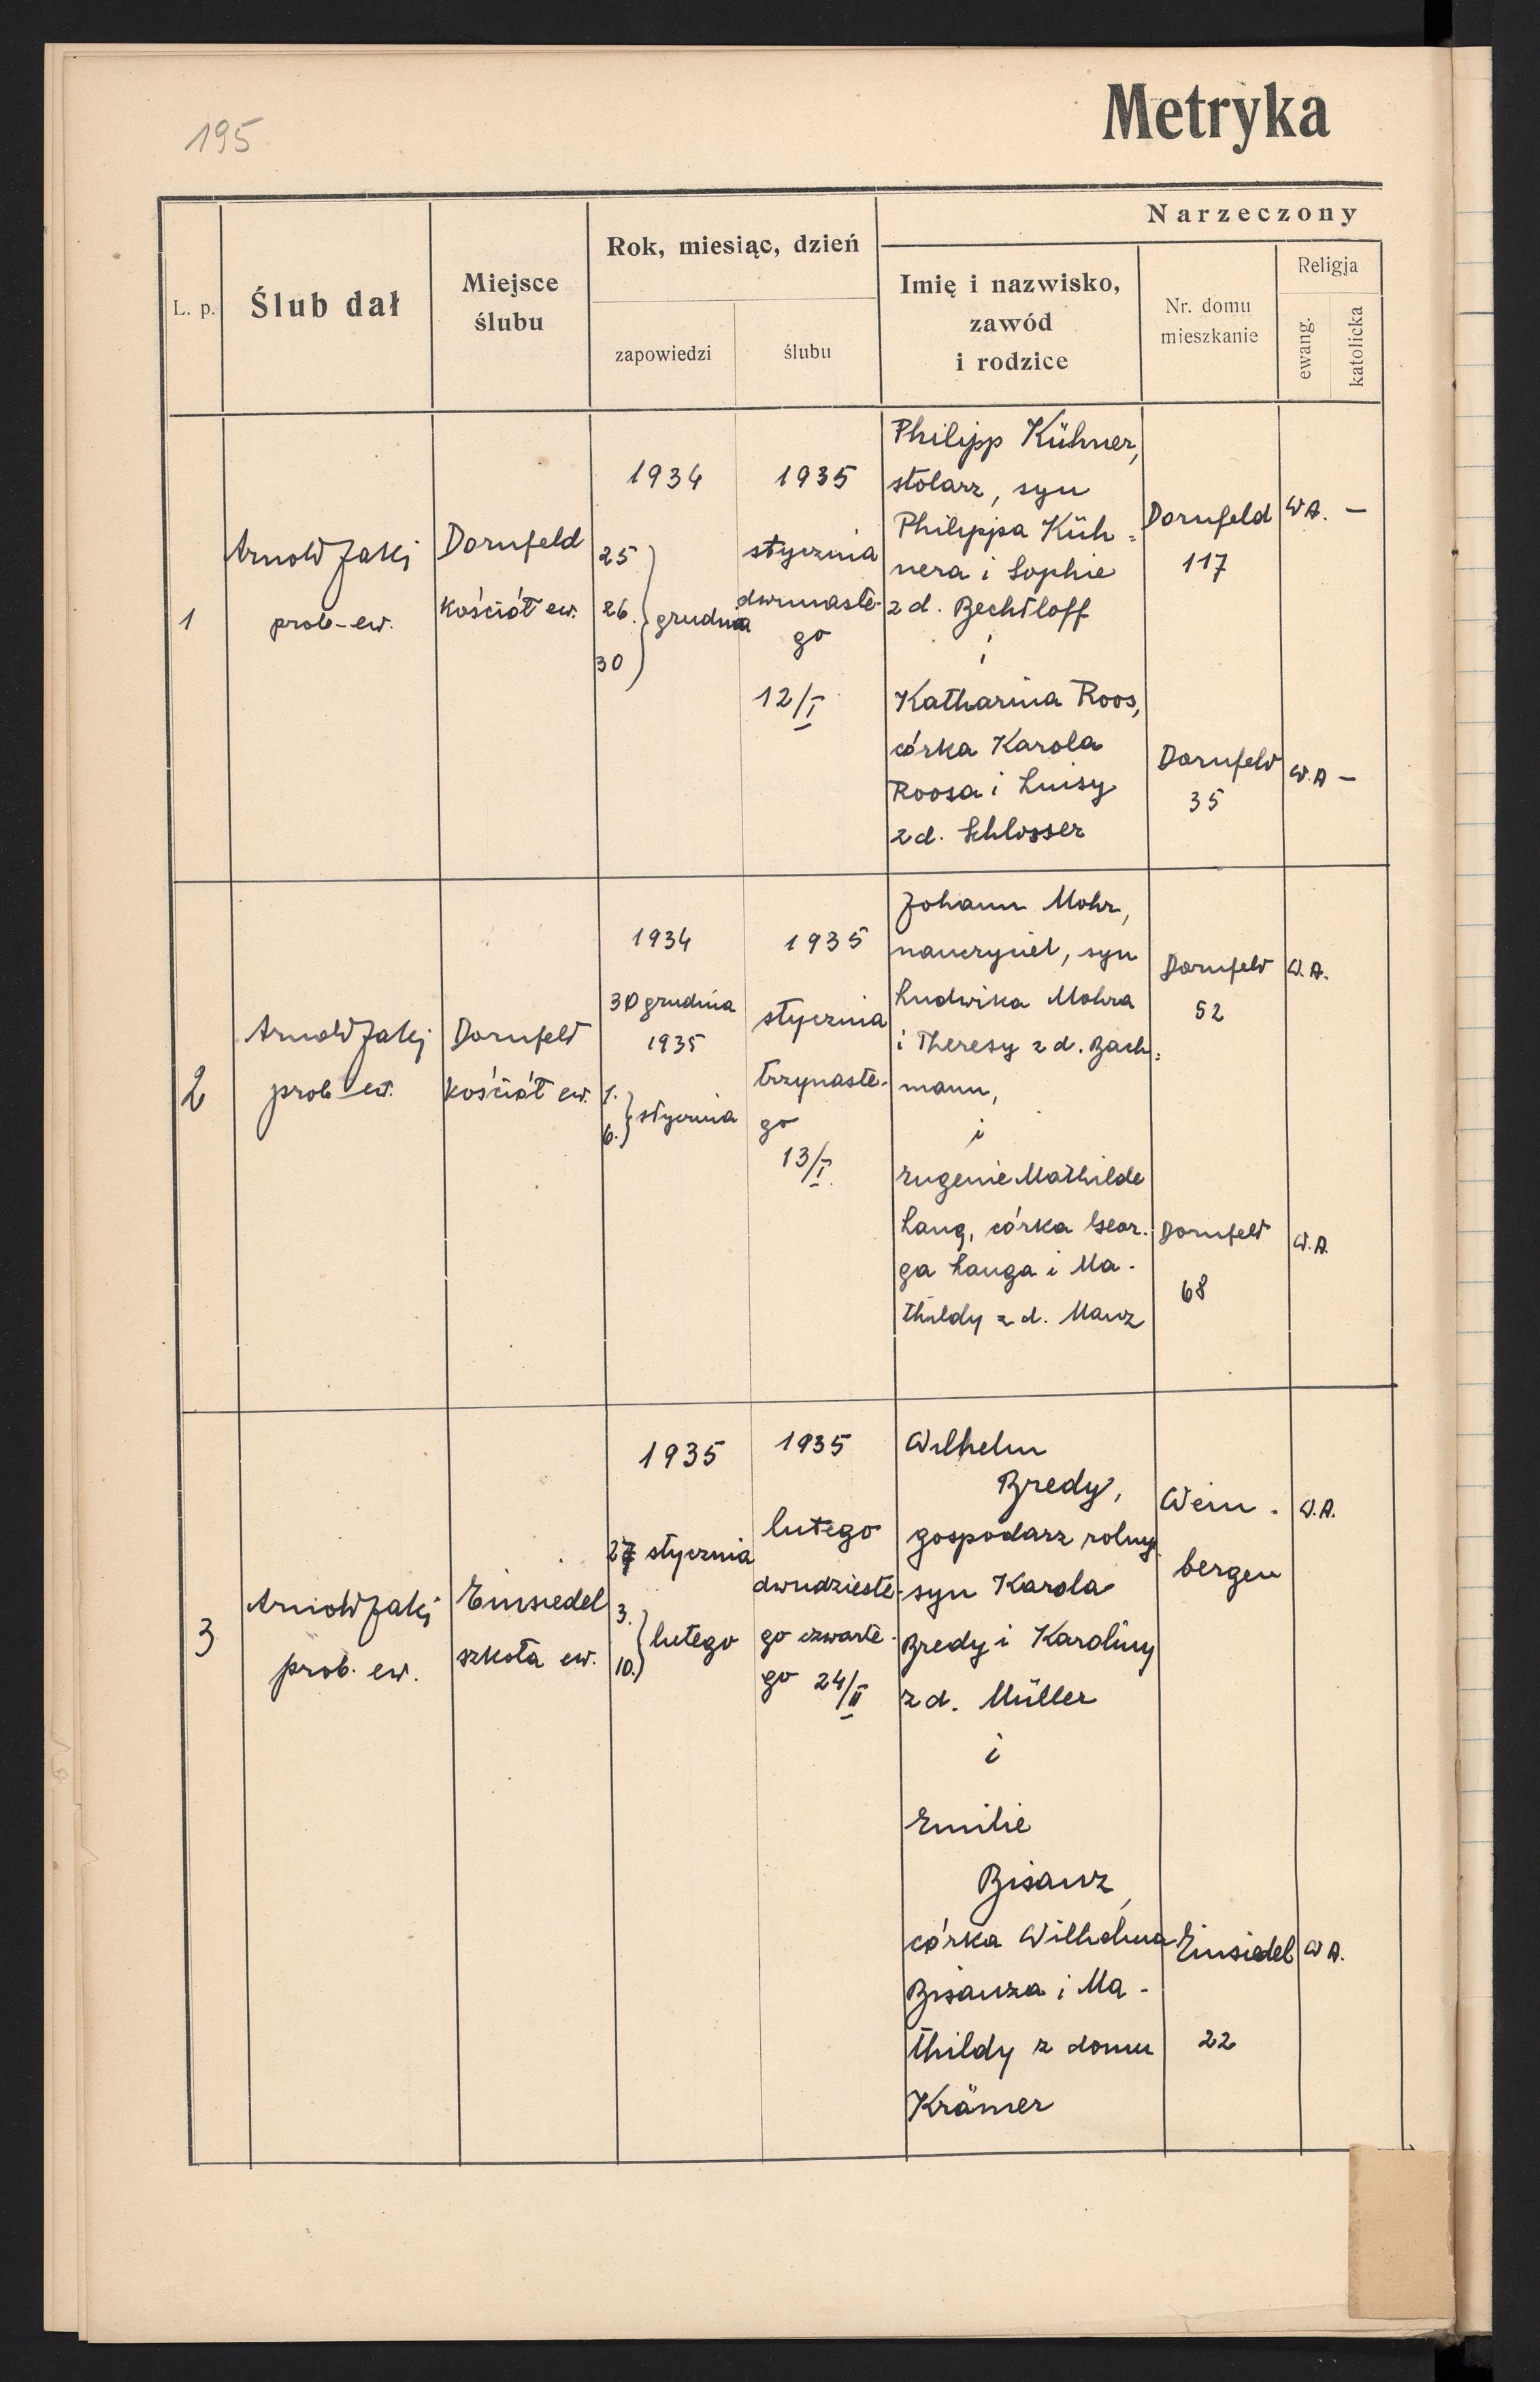 195
Metryka
Narzeczony
L. p.
Ślub dał
Miejsce
ślubu
Rok, miesiąc, dzień
zapowiedzi
ślubu
Imię i nazwisko,
zawód
i rodzice
Nr. domu
mieszkanie
Religja
ewang.
katolicka
1
Arnold Jaki
prob-ew.
Dornfeld
kościół ew.
1934
25
26.
30
grudnia
1935
stycznia
dwunaste-
go
12/I
Philipp Kühner,
stolarz, syn
Philippa Küh=
nera i Sophie
z d. Bechtloff
i
Katharina Roos,
córka Karola
Roosa i Luisy
z d. Schlosser
Dornfeld
117
Dornfeld
35
W.A. —
W.A —
2
Arnold Jaki
prob-ew.
Dornfeld
kościół ew.
1934
30 grudnia
1935
1.
6.
stycznia
1935
stycznia
trzynaste-
go
13/I.
Johann Mohr,
nauczyciel, syn
Ludwika Mohra
i Theresy z d. Bach=
mann,
i
Eugenie Mathilde
Lang, córka Geor-
ga Langa i Ma-
thildy z d. Manz
Dornfeld
52
Dornfeld
68
W.A.
W.A.
3
Arnold Jaki
prob. ew.
Einsiedel
szkoła ew.
1935
27 stycznia
3.
10.
lutego
1935
lutego
dwudzieste-
go czwarte-
go 24/II
Wilhelm
Bredy,
gospodarz rolny
syn Karola
Bredy i Karoliny
z d. Müller
i
Emilie
Bisanz,
córka Wilhelma
Bisanza i Ma-
thildy z domu
Krämer
Wein-
bergen
Einsiedel
22
W.A.
W A.